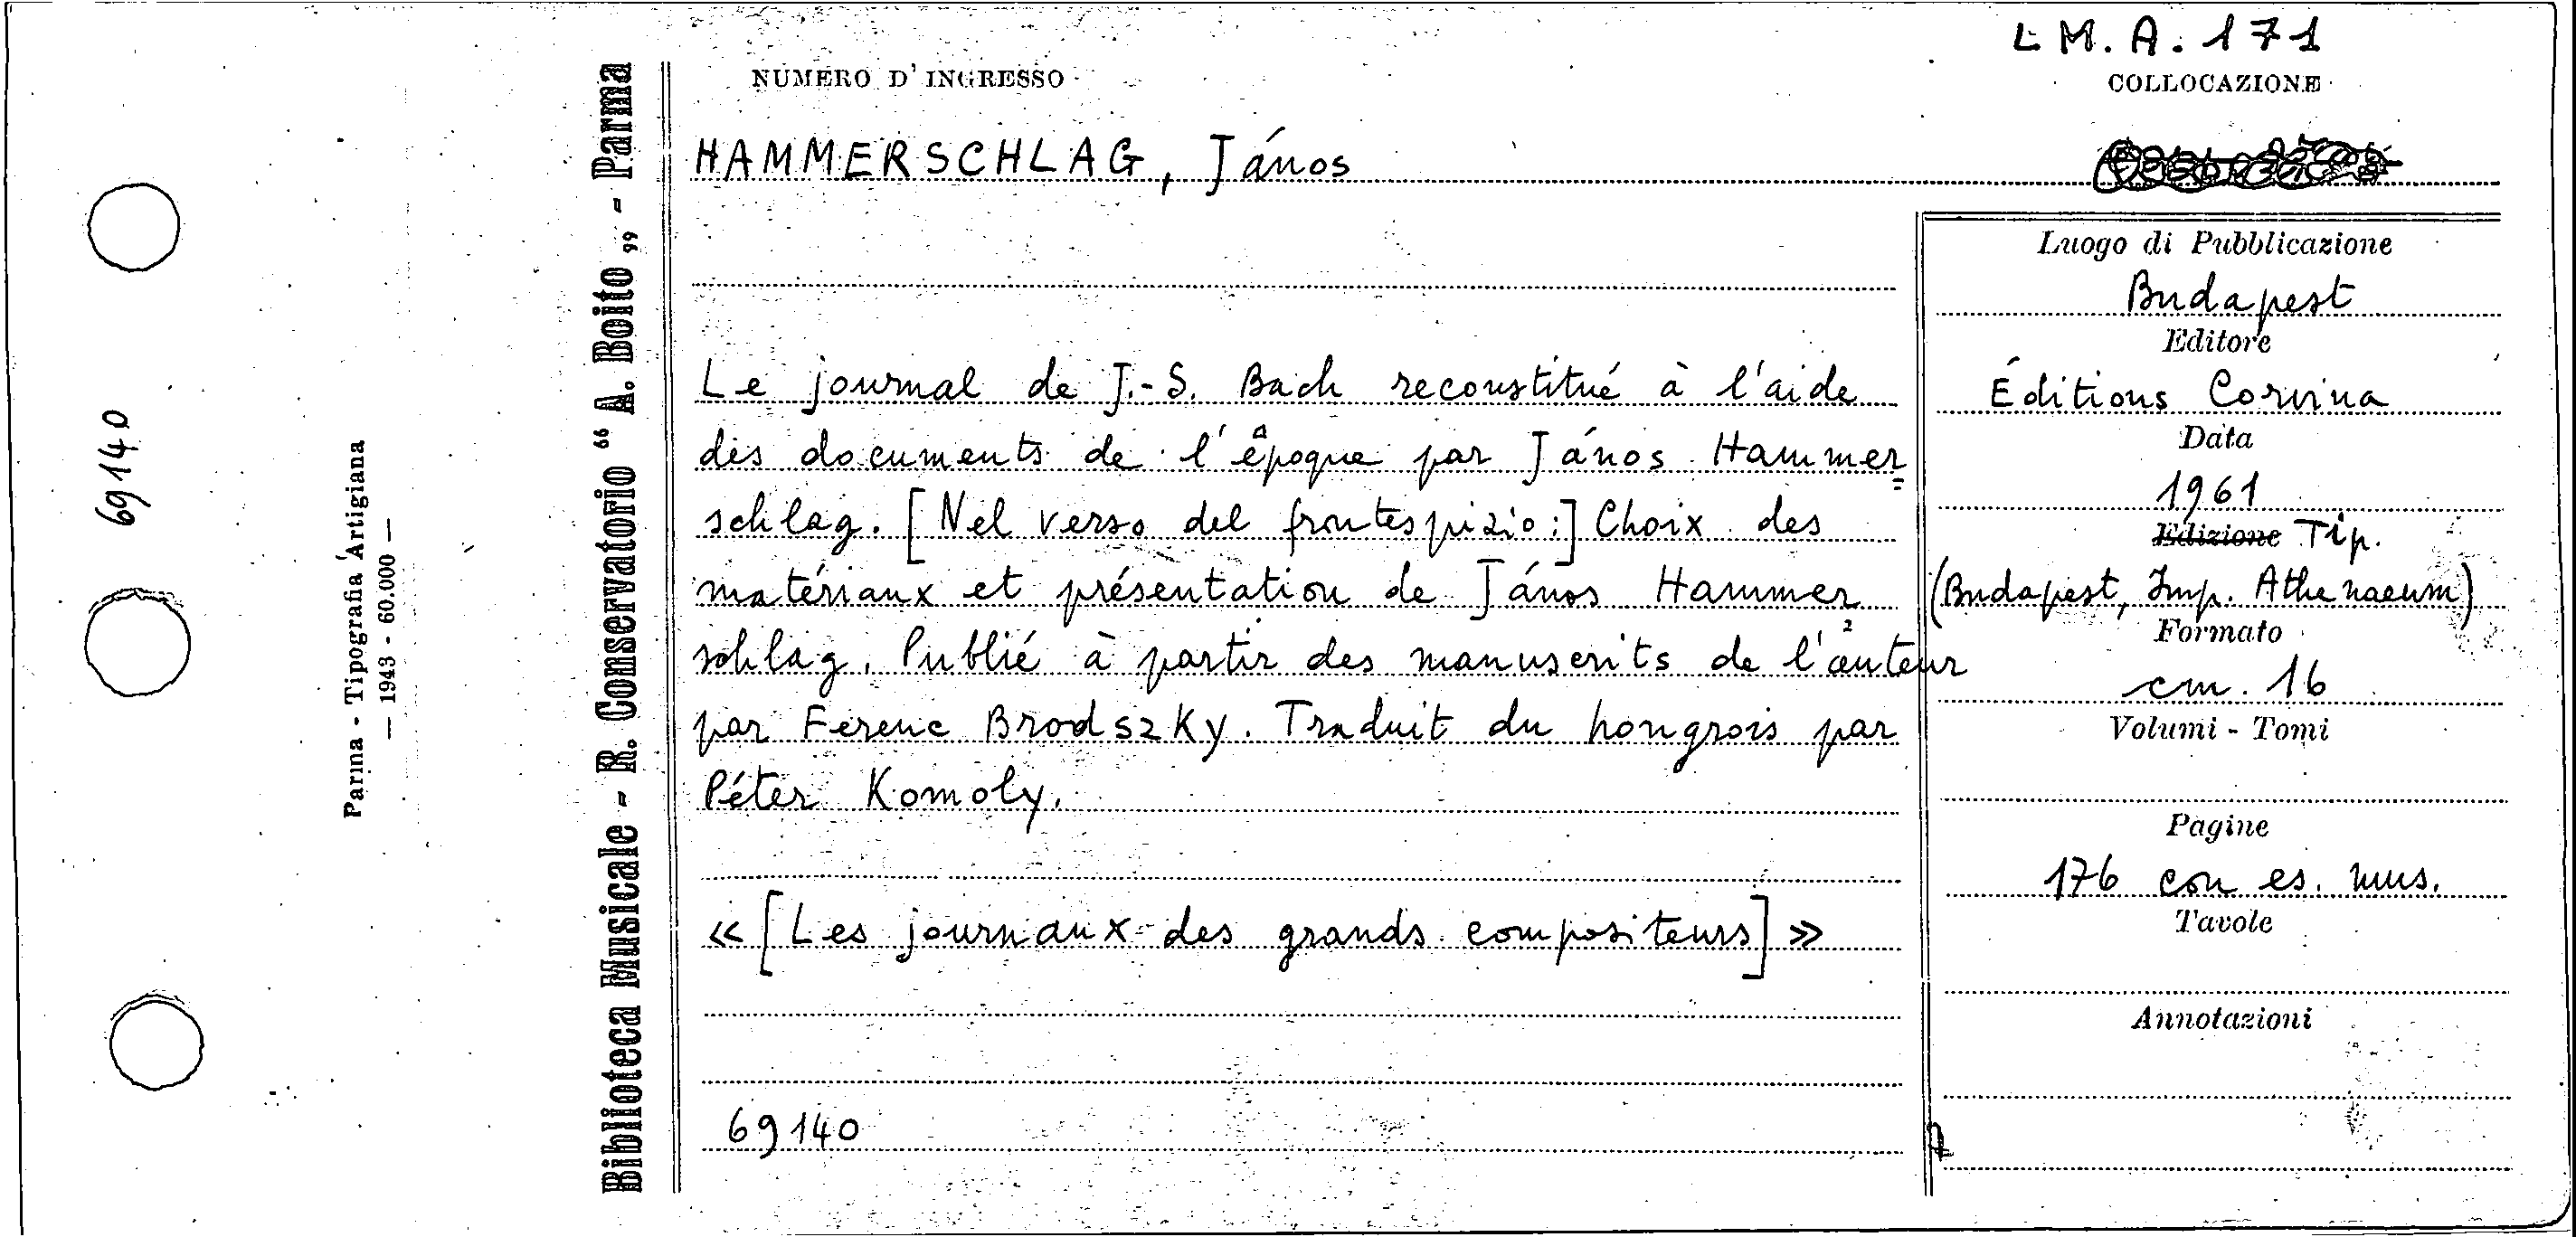 L M. A. 171
NUMERO D'INGRESSO
COLLOCAZIONE
HAMMERSCHLAG, János
Le journal de J.-S. Bach reconstitué à l'aide
des documents de l'époque par János Hammer=
schlag. [Nel verso del frontespizio:] Choix des
matériaux et présentation de János Hammer=
schlag. Publié à partir des manuscrits de l'auteur
par Ferenc Brodszky. Traduit du hongrois par
Péter Komoly.
«[Les journaux des grands compositeurs]»
69140
Luogo di Pubblicazione
Budapest
Editore
Éditions Corvina
Data
1961
Edizione Tip.
(Budapest, Imp. Athenaeum)
Formato
cm. 16
Volumi - Tomi
Pagine
176 con es. mus.
Tavole
Annotazioni
Biblioteca Musicale - R. Conservatorio "A. Boito" - Parma
Parma - Tipografia Artigiana
— 1943 - 60.000 —
69140